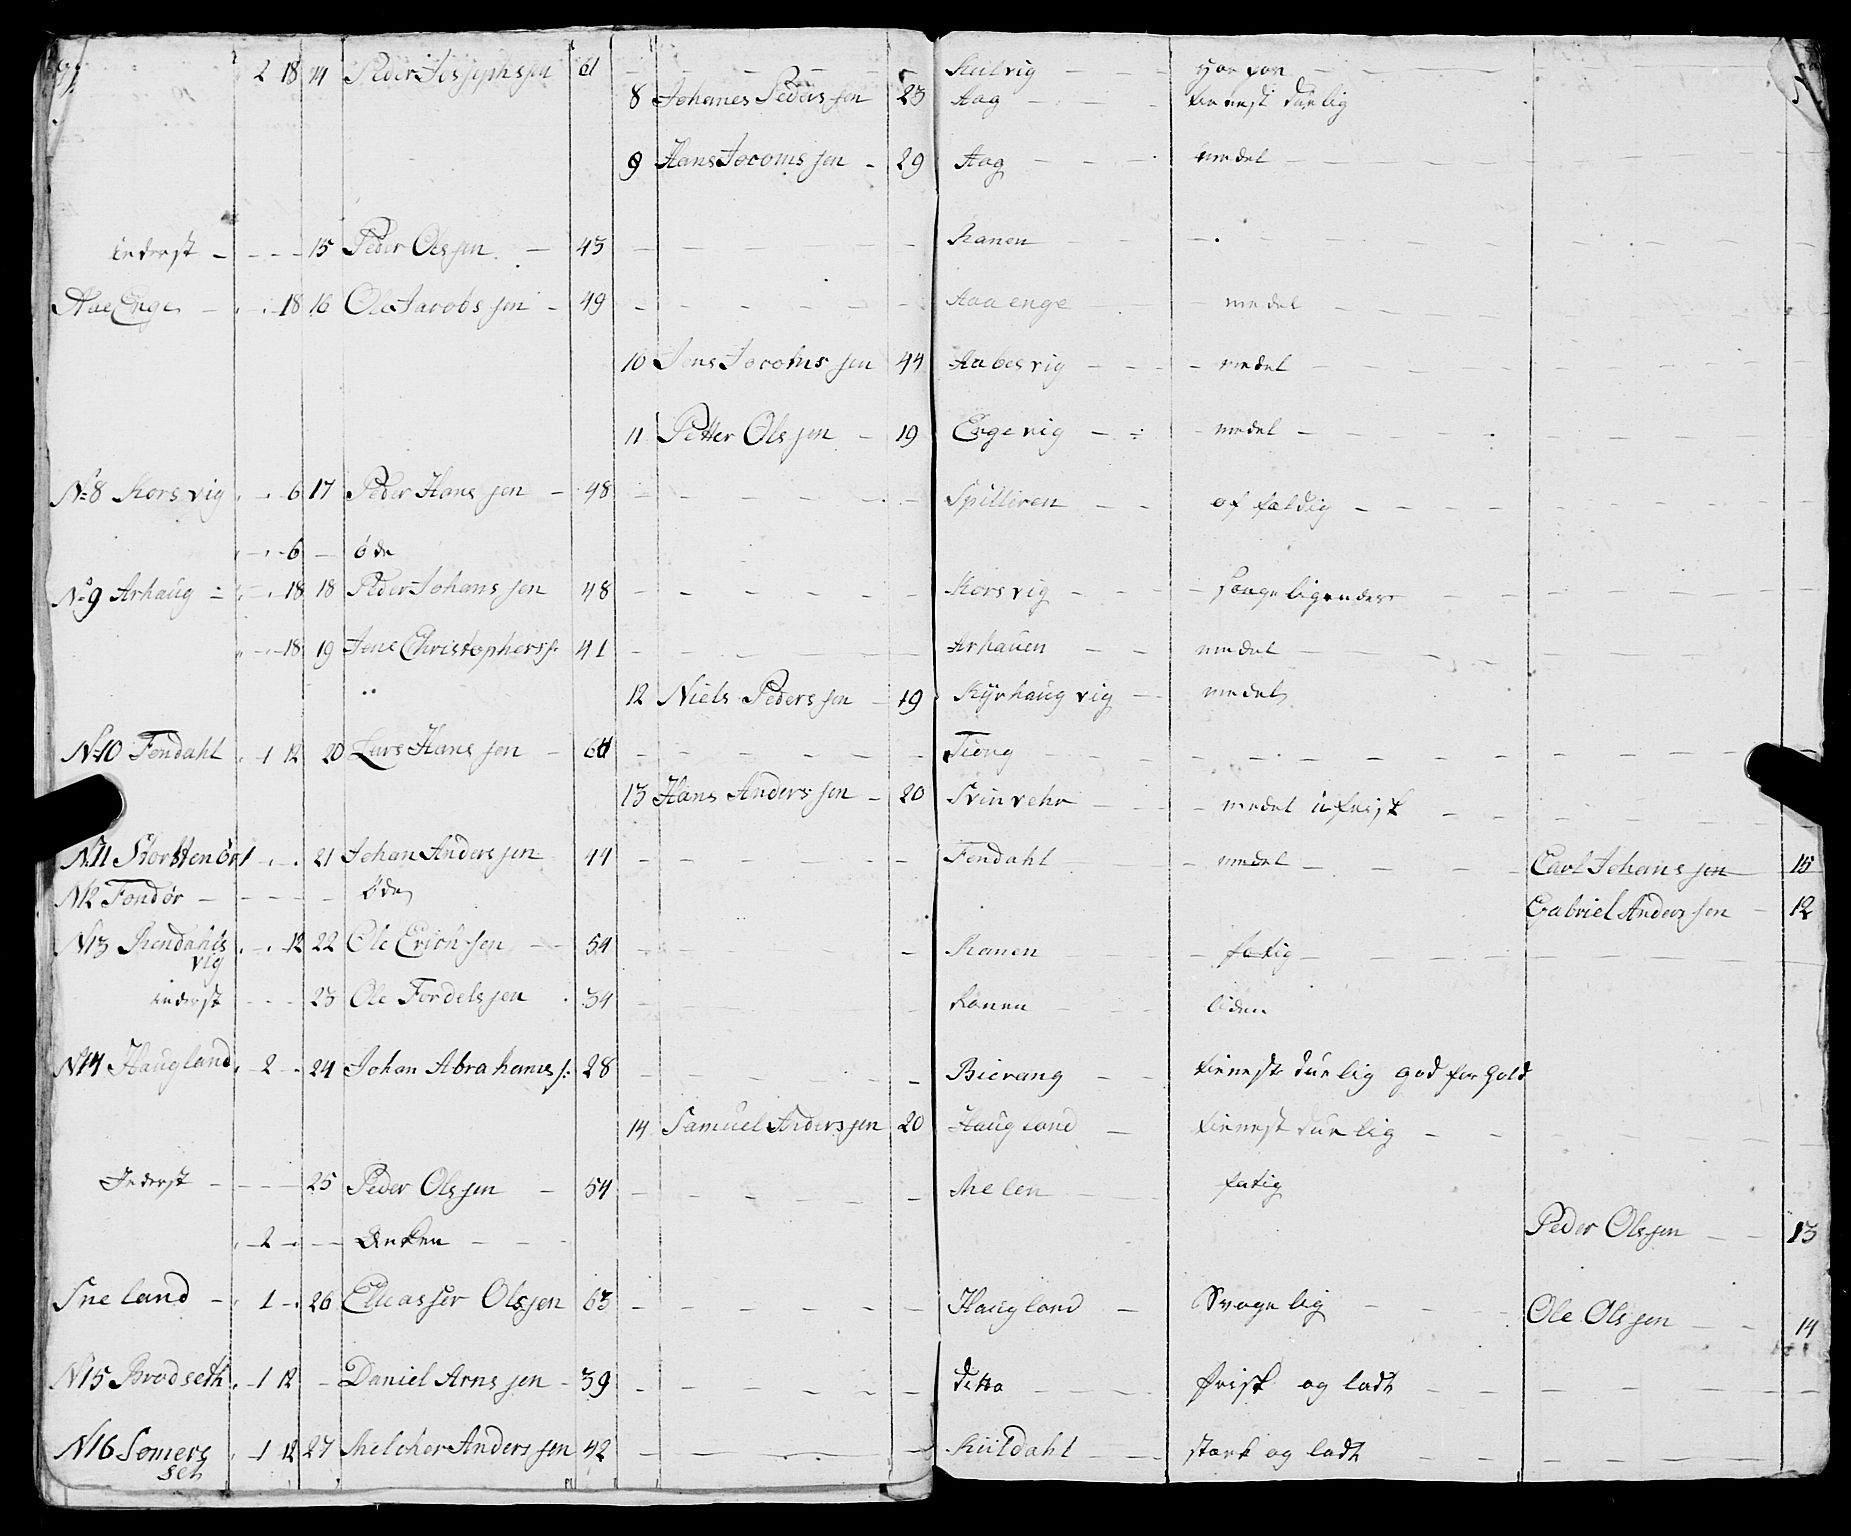 2 18 14 Peder Jossephssen 61 — — — — — Kulvig — — —
8 Johanes Pederssen 23 Aag — — — tienest duelig
9 Hans Jocomssen - 29 Aag — — — medel —
inderst - - - - 15 Peder Olssen — 43 — — — — Ranen — — —
Aae Enge — 18 16 Ole Jacobssen - 49 — — — — — Aaa enge — medel — — —
10 Jens Jocomssen 44 Aabosvig — — - medel — — —
11 Petter Olssen — 19 Engevig — - medel — — —
No 8 Korsvig 6 17 Peder Hanssen — 48 — — — — Spilleren — - of fældig — — —
6 — öde
No 9 Arhaug 18 18 Peder Johanssen 48 — — — — Korsvig — — - sængeligendes — —
18 19 Jens Christophers s: 41 — — — — Arhauen — — medel — —
12 Niels Pederssen — 19 Kyrhaugvig — medel
No 10 Fendahl 1 12 20 Lars Hanssen — 60 — — — — Tiong — — —
13 Hans Anderssen — 20 Svinvehr — - medel ufrisk — — —
N 11 Storstenör 1 21 Johan Anderssen 44 — — — — Fendahl — - medel — — — Carl Johanssen 15
N 12 Fondør — - - - - öde
Gabriel Anderssen — 12
N 13 Rendahls vig 12 22 Ole Erichssen — 54 — — Ranen - fatig — — —
inderst - - - 23 Ole Fordelssen 34 — — Ranen — — liden
N 14 Haugland 2 24 Johan Abrahams s: 28 — — — Bierang — — tienest duelig god forhold
14 Samuel Anderssen 20 Haugland — tienest duelig — —
Inderst — - - - 25 Peder Olssen — 54 — — — — Melen — — fatig
2 - - - Enken — — —
Peder Olssen — — 13
Sneland — 1 - 26 Eliasser Olssen 63 — — — — Haugland — Svagelig — —
Ole Olssen — — 14
N 15 Brodseth 1 12 — Daniel Arnssen - 39 — — — — ditto — — — frisk og ladt — — —
N 16 Somers set 1 12 27 Melcher Anderssen 42 — — — Kuldahl — — stærk og ladt — — —